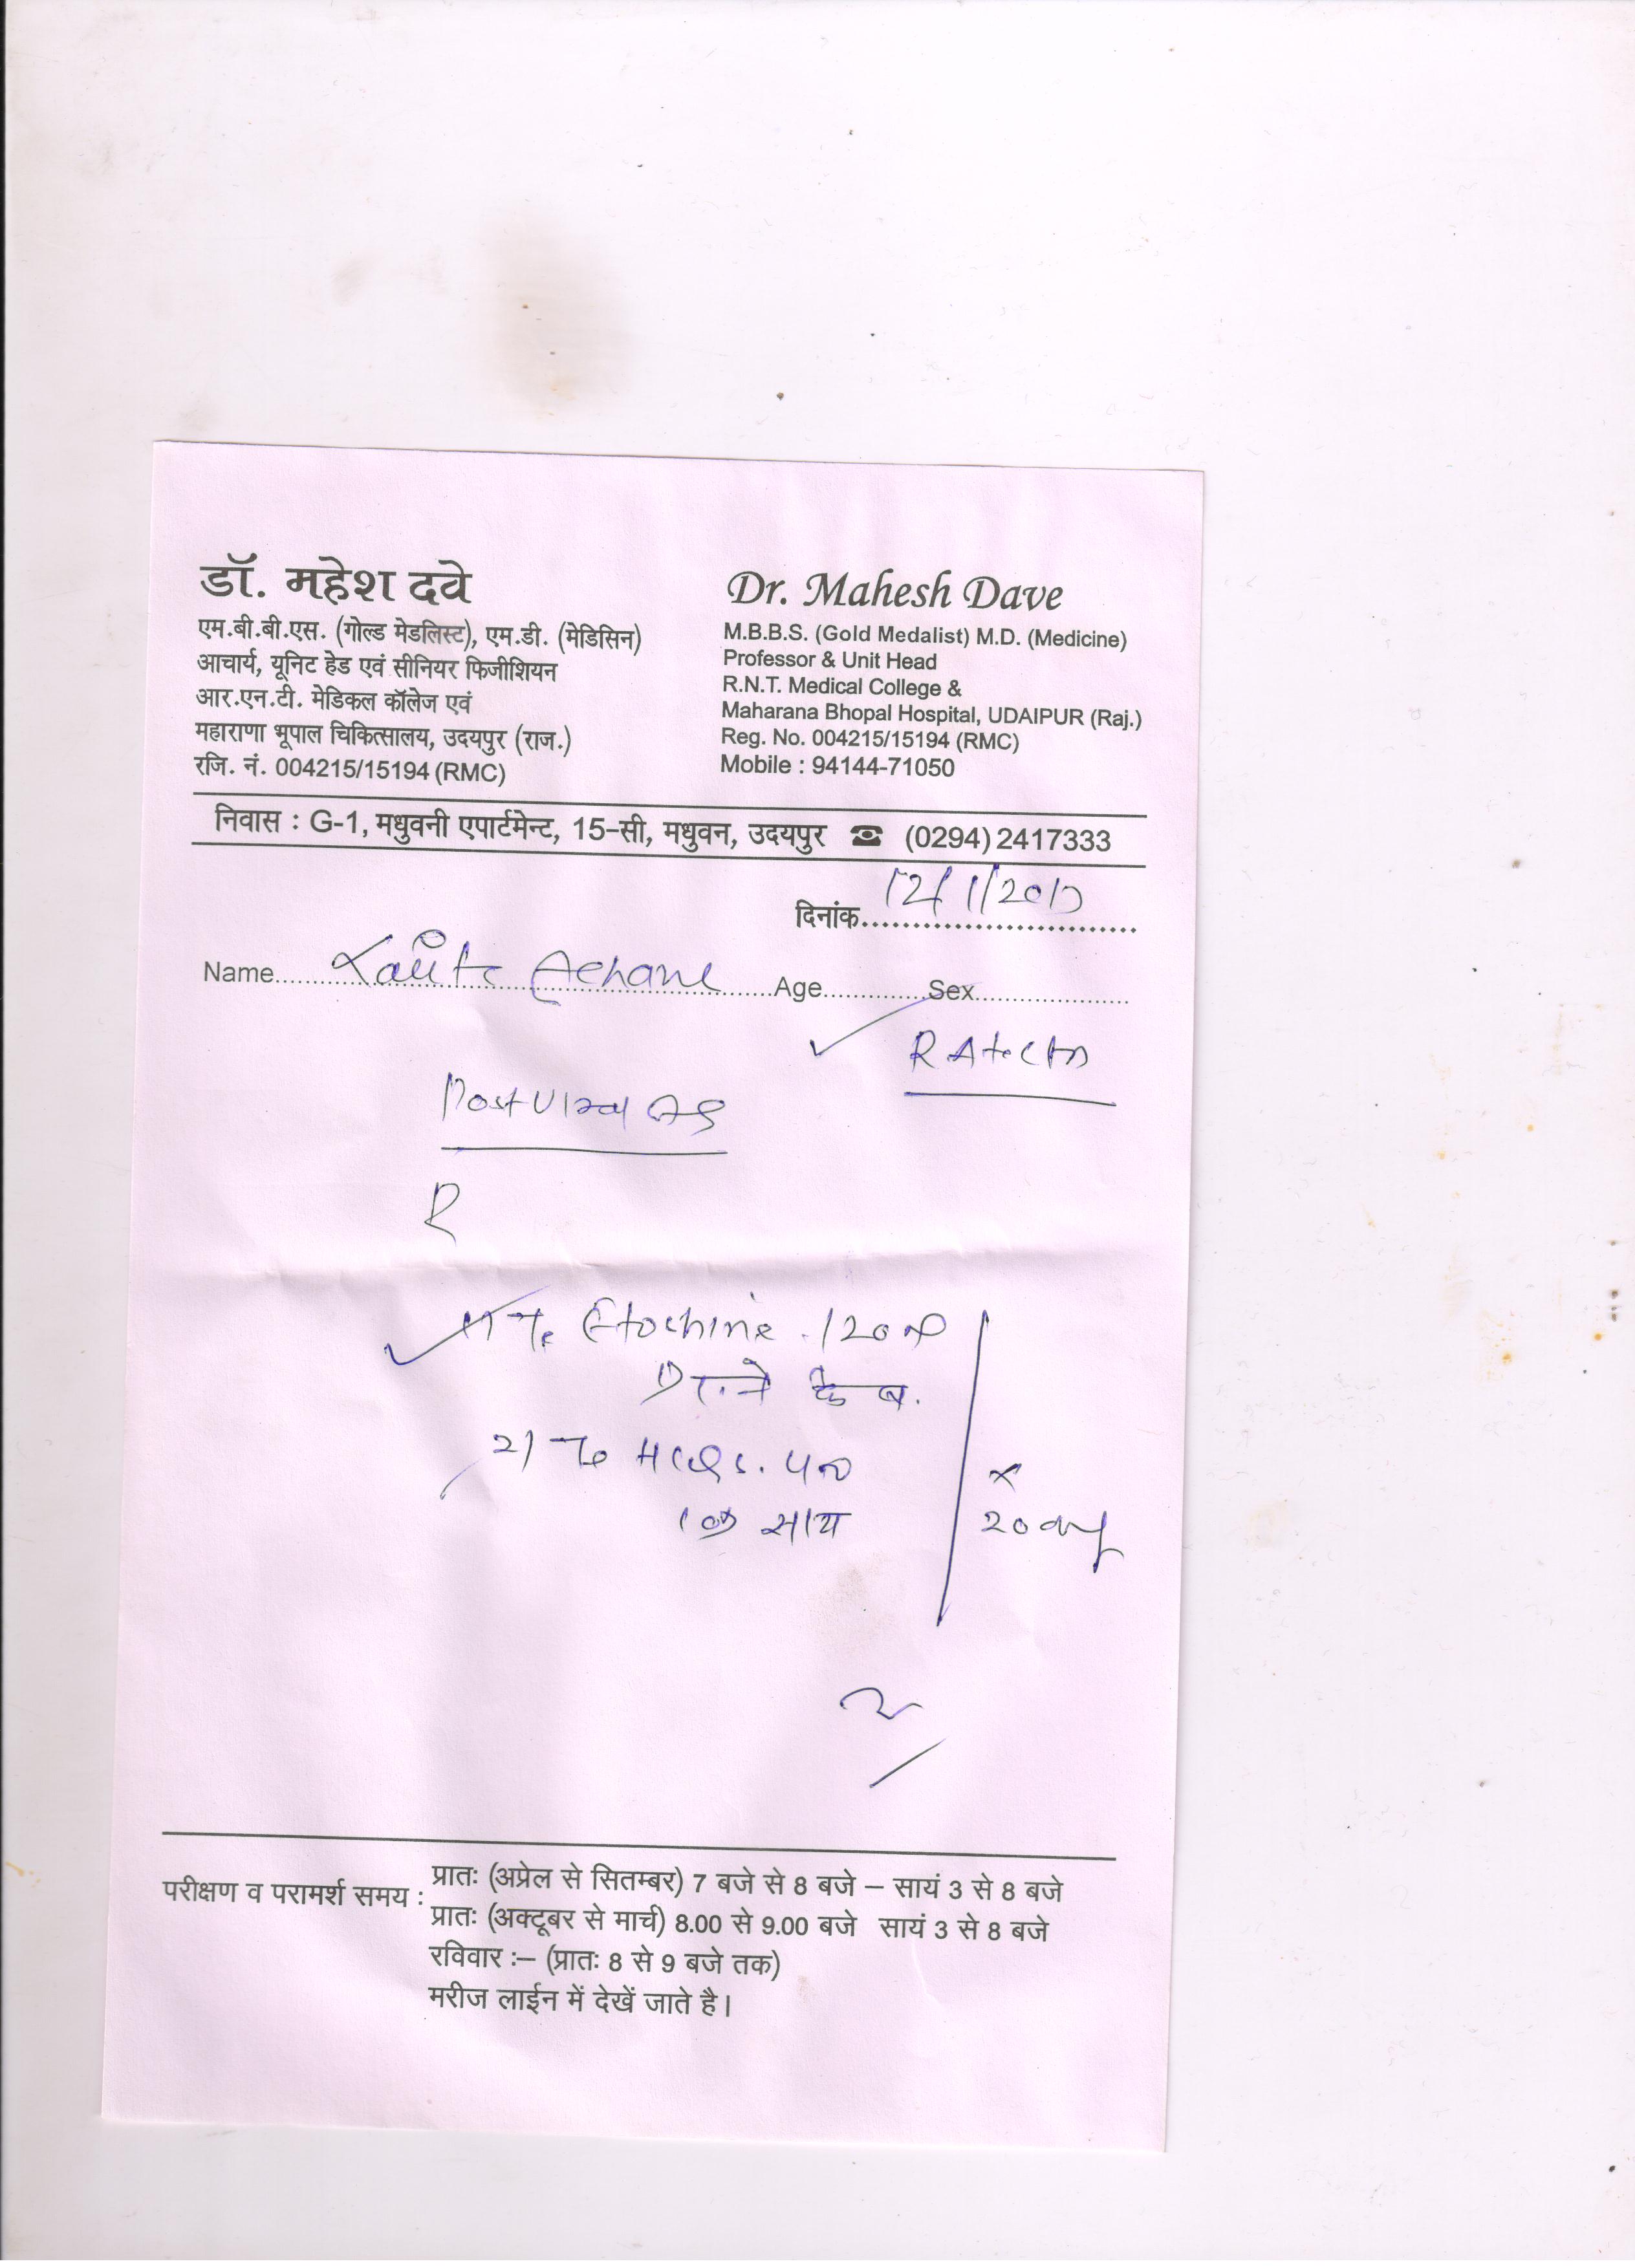 डॉ. महेश दवे
एम.बी.बी.एस. (गोल्ड मेडलिस्ट), एम.डी. (मेडिसिन)
आचार्य, यूनिट हेड एवं सीनियर फिजीशियन
आर.एन.टी. मेडिकल कॉलेज एवं
महाराणा भूपाल चिकित्सालय, उदयपुर (राज.)
रजि. नं. 004215/15194 (RMC)
Dr. Mahesh Dave
M.B.B.S. (Gold Medalist) M.D. (Medicine)
Professor & Unit Head
R.N.T. Medical College &
Maharana Bhopal Hospital, UDAIPUR (Raj.)
Reg. No. 004215/15194 (RMC)
Mobile : 94144-71050
निवास : G-1, मधुवनी एपार्टमेन्ट, 15-सी, मधुवन, उदयपुर ☎ (0294) 2417333
दिनांक
Name Age Sex
R
120
2) HCQS.
सांय
x
20
परीक्षण व परामर्श समय : प्रातः (अप्रेल से सितम्बर) 7 बजे से 8 बजे – सायं 3 से 8 बजे
प्रातः (अक्टूबर से मार्च) 8.00 से 9.00 बजे सायं 3 से 8 बजे
रविवार :– (प्रातः 8 से 9 बजे तक)
मरीज लाईन में देखें जाते है।